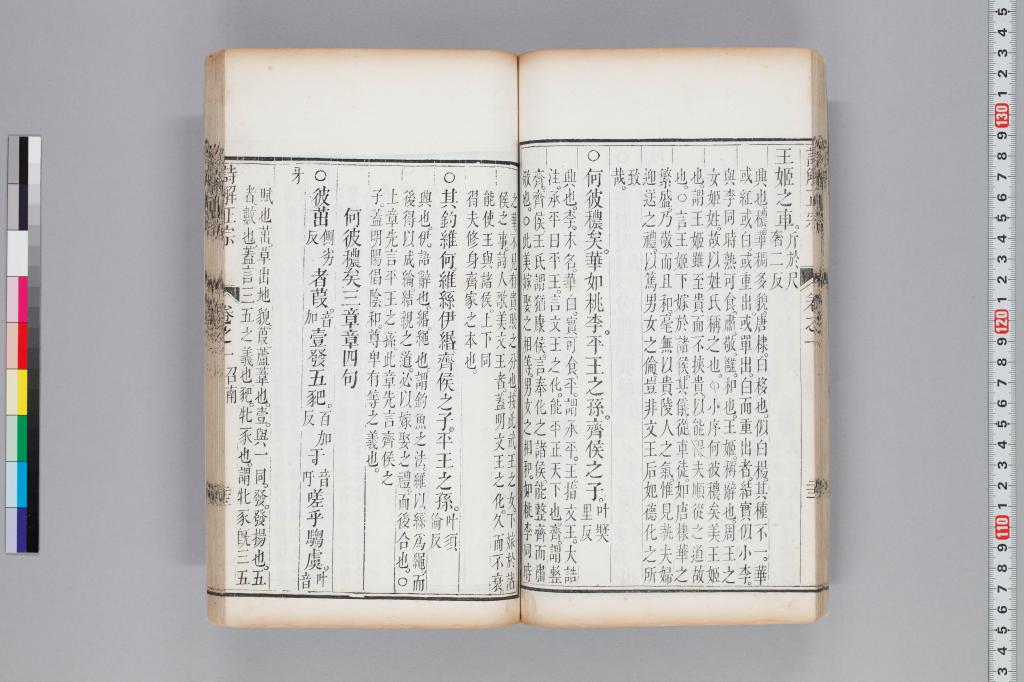 王姬之車。斤於尺奢二反
典也。穠華稠多貌。唐棣。曰栘也。似白楊。其種不一。華
或紅或白。或重出或單出。白而重出者。結實似小李。
與李同時熟可食。肅敬。雝。和也。王姬稱辭也。周王之
女姬姓。故以姓氏稱之也。○小序何彼穠矣美王姬
也。謂王姬雖至貴而不挾貴。以能執夫順從之道故
也。○言王姬下嫁於諸侯。其儀從車徒。如唐棣華之
繁盛乃敬而且和。毫無以貴陵人之氣惟見執夫婦
迎送之禮。以篤男女之倫。豈非文王后妃德化之所
致
哉。
○何彼穠矣。華如桃李。平王之孫。齊侯之子。叶奬里反
典也。李。木名。華白。實可食。平。謂承平。王。指文王。大誥
注。承平曰平王。言文王之化。能平正天下也。齊。謂整
齊。齊侯王氏謂猶康侯。言奉化之諸侯能整齊而肅
敬也。○此美嫁娶之相等。男女之相和。如桃李同時
之華。不見有貴賤之分也。按此武王之女。下嫁於諸
侯之事。詩人歌美文王者。蓋明文王之化。久而不衰。
能使王與諸侯上下同
得夫修身齊家之本也。
○其釣維何維絲伊緡。齊侯之子。平王之孫。叶須倫反
興也。伊。語辭也。緡。繩也。謂釣魚之法。維以絲爲繩。而
後得以成綸結親之道。必以嫁娶之禮。而後合也。○
上章先言平王之孫此章先言齊侯之
子。蓋明陽倡陰和。尊卑有等之義也。
何彼穠矣三章章四句
○彼茁側劣反者葭音加壹發五豝。百加反于音吁嗟乎騶虞。叶音
牙
賦也。茁。草出地貌。葭。蘆葦也。壹。與一同。發。發揚也。五
者。數也。蓋言三五之義也。豝。牝豕也。謂牝豕既三五
詩解正宗
卷之一
召南